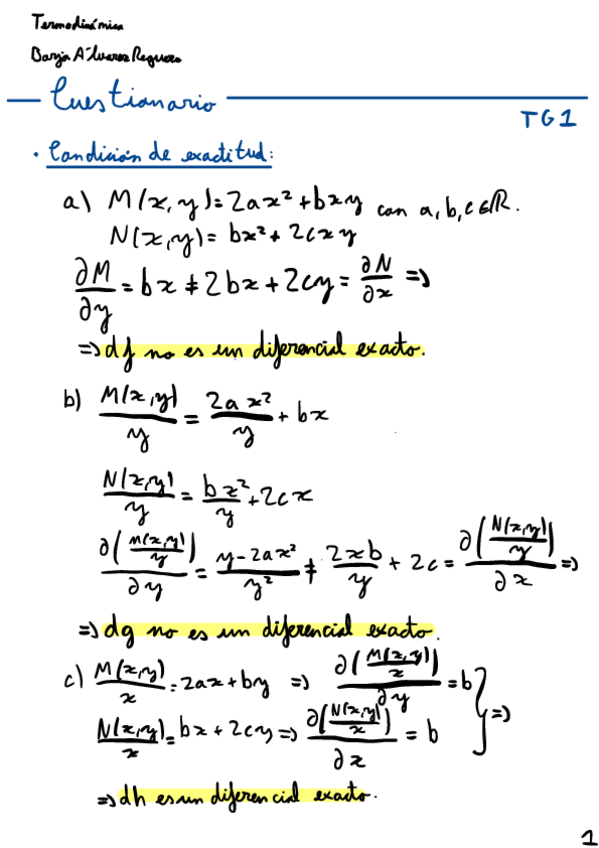 Termodinámica
Borja Álvarez Reguero
Cuestionario
TG1
· Condición de exactitud:
a) M(x,y)=2ax²+bxy con a,b,c∈ℝ.
N(x,y)=bx²+2cxy
∂M/∂y = bx ≠ 2bx+2cy = ∂N/∂x ⇒
⇒ df no es un diferencial exacto.
b) M(x,y)/y = 2ax²/y + bx
N(x,y)/y = bx²/y + 2cx
∂(M(x,y)/y)/∂y = y-2ax²/y² ≠ 2xb/y + 2c = ∂(N(x,y)/y)/∂x ⇒
⇒ dg no es un diferencial exacto.
c) M(x,y)/x = 2ax+by ⇒ ∂(M(x,y)/x)/∂y = b
N(x,y)/x = bx+2cy ⇒ ∂(N(x,y)/x)/∂x = b } ⇒
⇒ dh es un diferencial exacto.
1